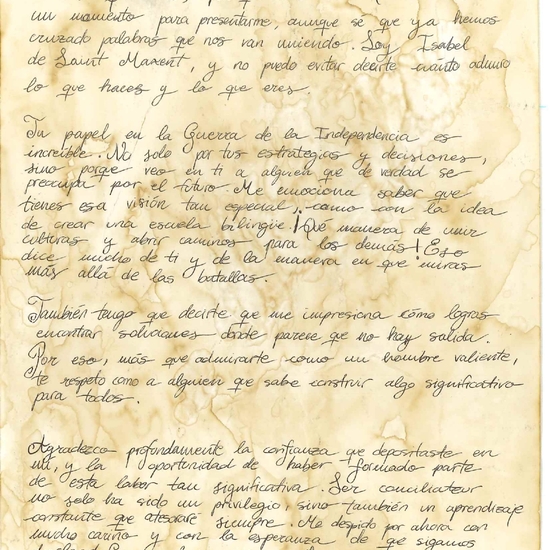 un momento para presentarme, aunque se que ya hemos
cruzado palabras que nos van uniendo. Soy Isabel
de Saint Maxent, y no puedo evitar decirte cuánto admiro
lo que haces y lo que eres.
Tu papel en la Guerra de la Independencia es
increíble. No solo por tus estrategias y decisiones,
sino porque veo en ti a alguien que de verdad se
preocupa por el futuro. Me emociona saber que
tienes esa visión tan especial, como con la idea
de crear una escuela bilingüe. ¡Qué manera de unir
culturas y abrir caminos para los demás! Eso
dice mucho de ti y de la manera en que miras
más allá de las batallas.
También tengo que decirte que me impresiona cómo logras
encontrar soluciones donde parece que no hay salida.
Por eso, más que admirarte como un hombre valiente,
te respeto como a alguien que sabe construir algo significativo
para todos.
Agradezco profundamente la confianza que depositaste en
mí, y la oportunidad de haber formado parte
de esta labor tan significativa. Ser conciliateur
no solo ha sido un privilegio, sino también un aprendizaje
constante que atesoraré siempre. Me despido por ahora con
mucho cariño y con la esperanza de que sigamos